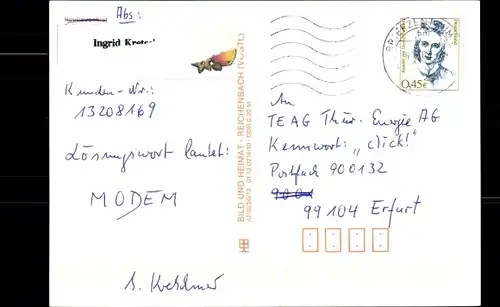 Abs:
Ingrid
Kunden-Nr.:
13208169
Lösungswort lautet:
MODEM
BILD UND HEIMAT · REICHENBACH (VOGTL)
An
TEAG Thür. Energie AG
Kennwort: „click!"
Postfach 900132
99104 Erfurt
0,45€
Deutschland